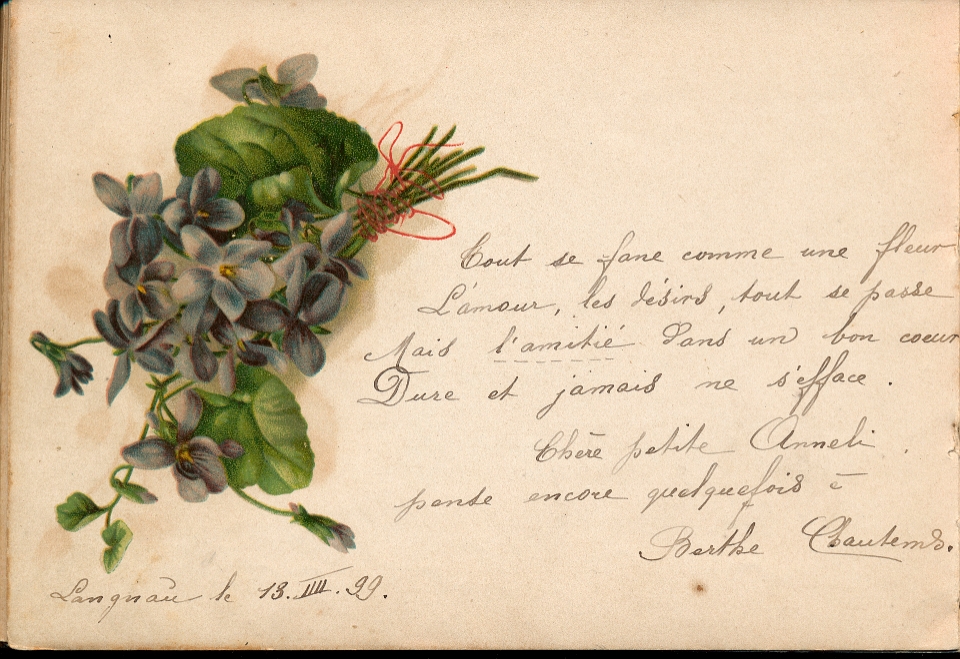 Tout se fane comme une fleur
L'amour, les désirs, tout se passe
Mais l'amitié dans un bon coeur
Dure et jamais ne s'efface.
Chère petite Anneli
pense encore quelquefois à
Berthe Chautems.
Langnau le 13. IIII. 99.